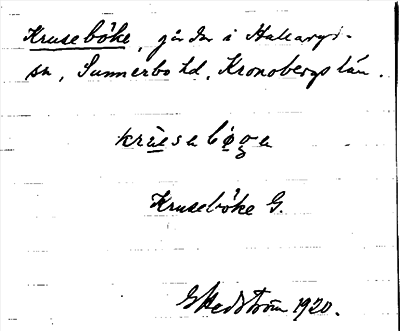 Kruseböke, gårdar i Hallaryd-
sn, Sunnerbo hd, Kronobergs län.
krùsebøgə
Kruseböke G.
G Hedström 1920.